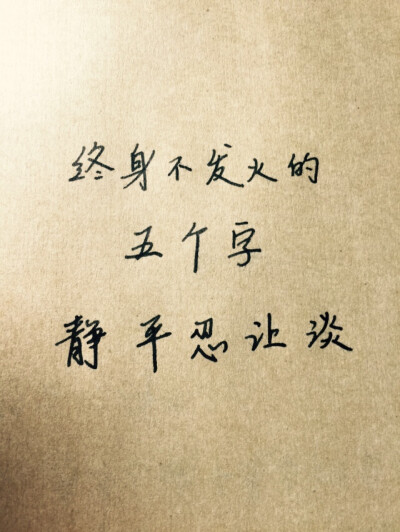 终身不发火的
五个字
静平忍让谈